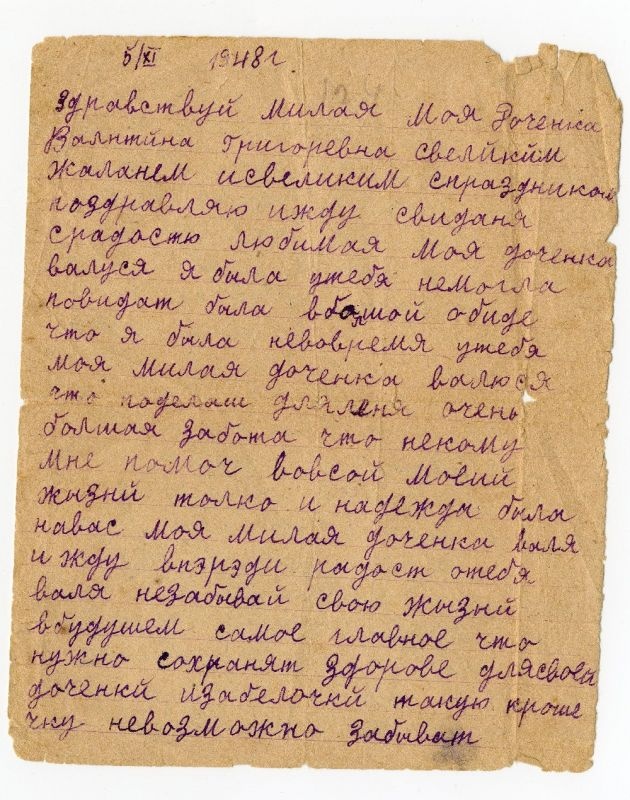 5/XI 1948 г.
здравствуй милая моя доченка
Валнтйна Григоревна свелйкйм
жаланем исвеликим спраздником
поздравляю ижду свиданя
срадостю любимая моя доченка
валуся я была утебя немогла
повидат была вболшой обиде
что я была невовремя утебя
моя милая доченка валюся
что поделаш для меня очень
болшая забота что некому
мне помоч вовсой моейй
жызнй толко и надежда была
навас моя милая доченка валя
и жду впэрэди радост отебя
валя незабывай свою жызнй
вбудушем самое главное что
нужно сохранят здорове длясвоей
доченкй изабелочкй такую кроше
чку невозможно забыват